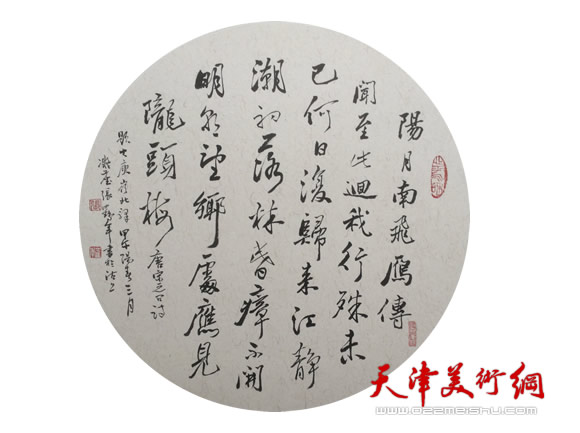 陽月南飛鴈傳
聞至此迴我行殊未
已何日復歸来江静
潮初落林昏瘴不開
明朝望鄉處應見
隴頭梅 唐宋之问诗
題大庾嶺北驛 甲午陽春三月
張 年書於沽上
天津美術網
www.022meishu.com